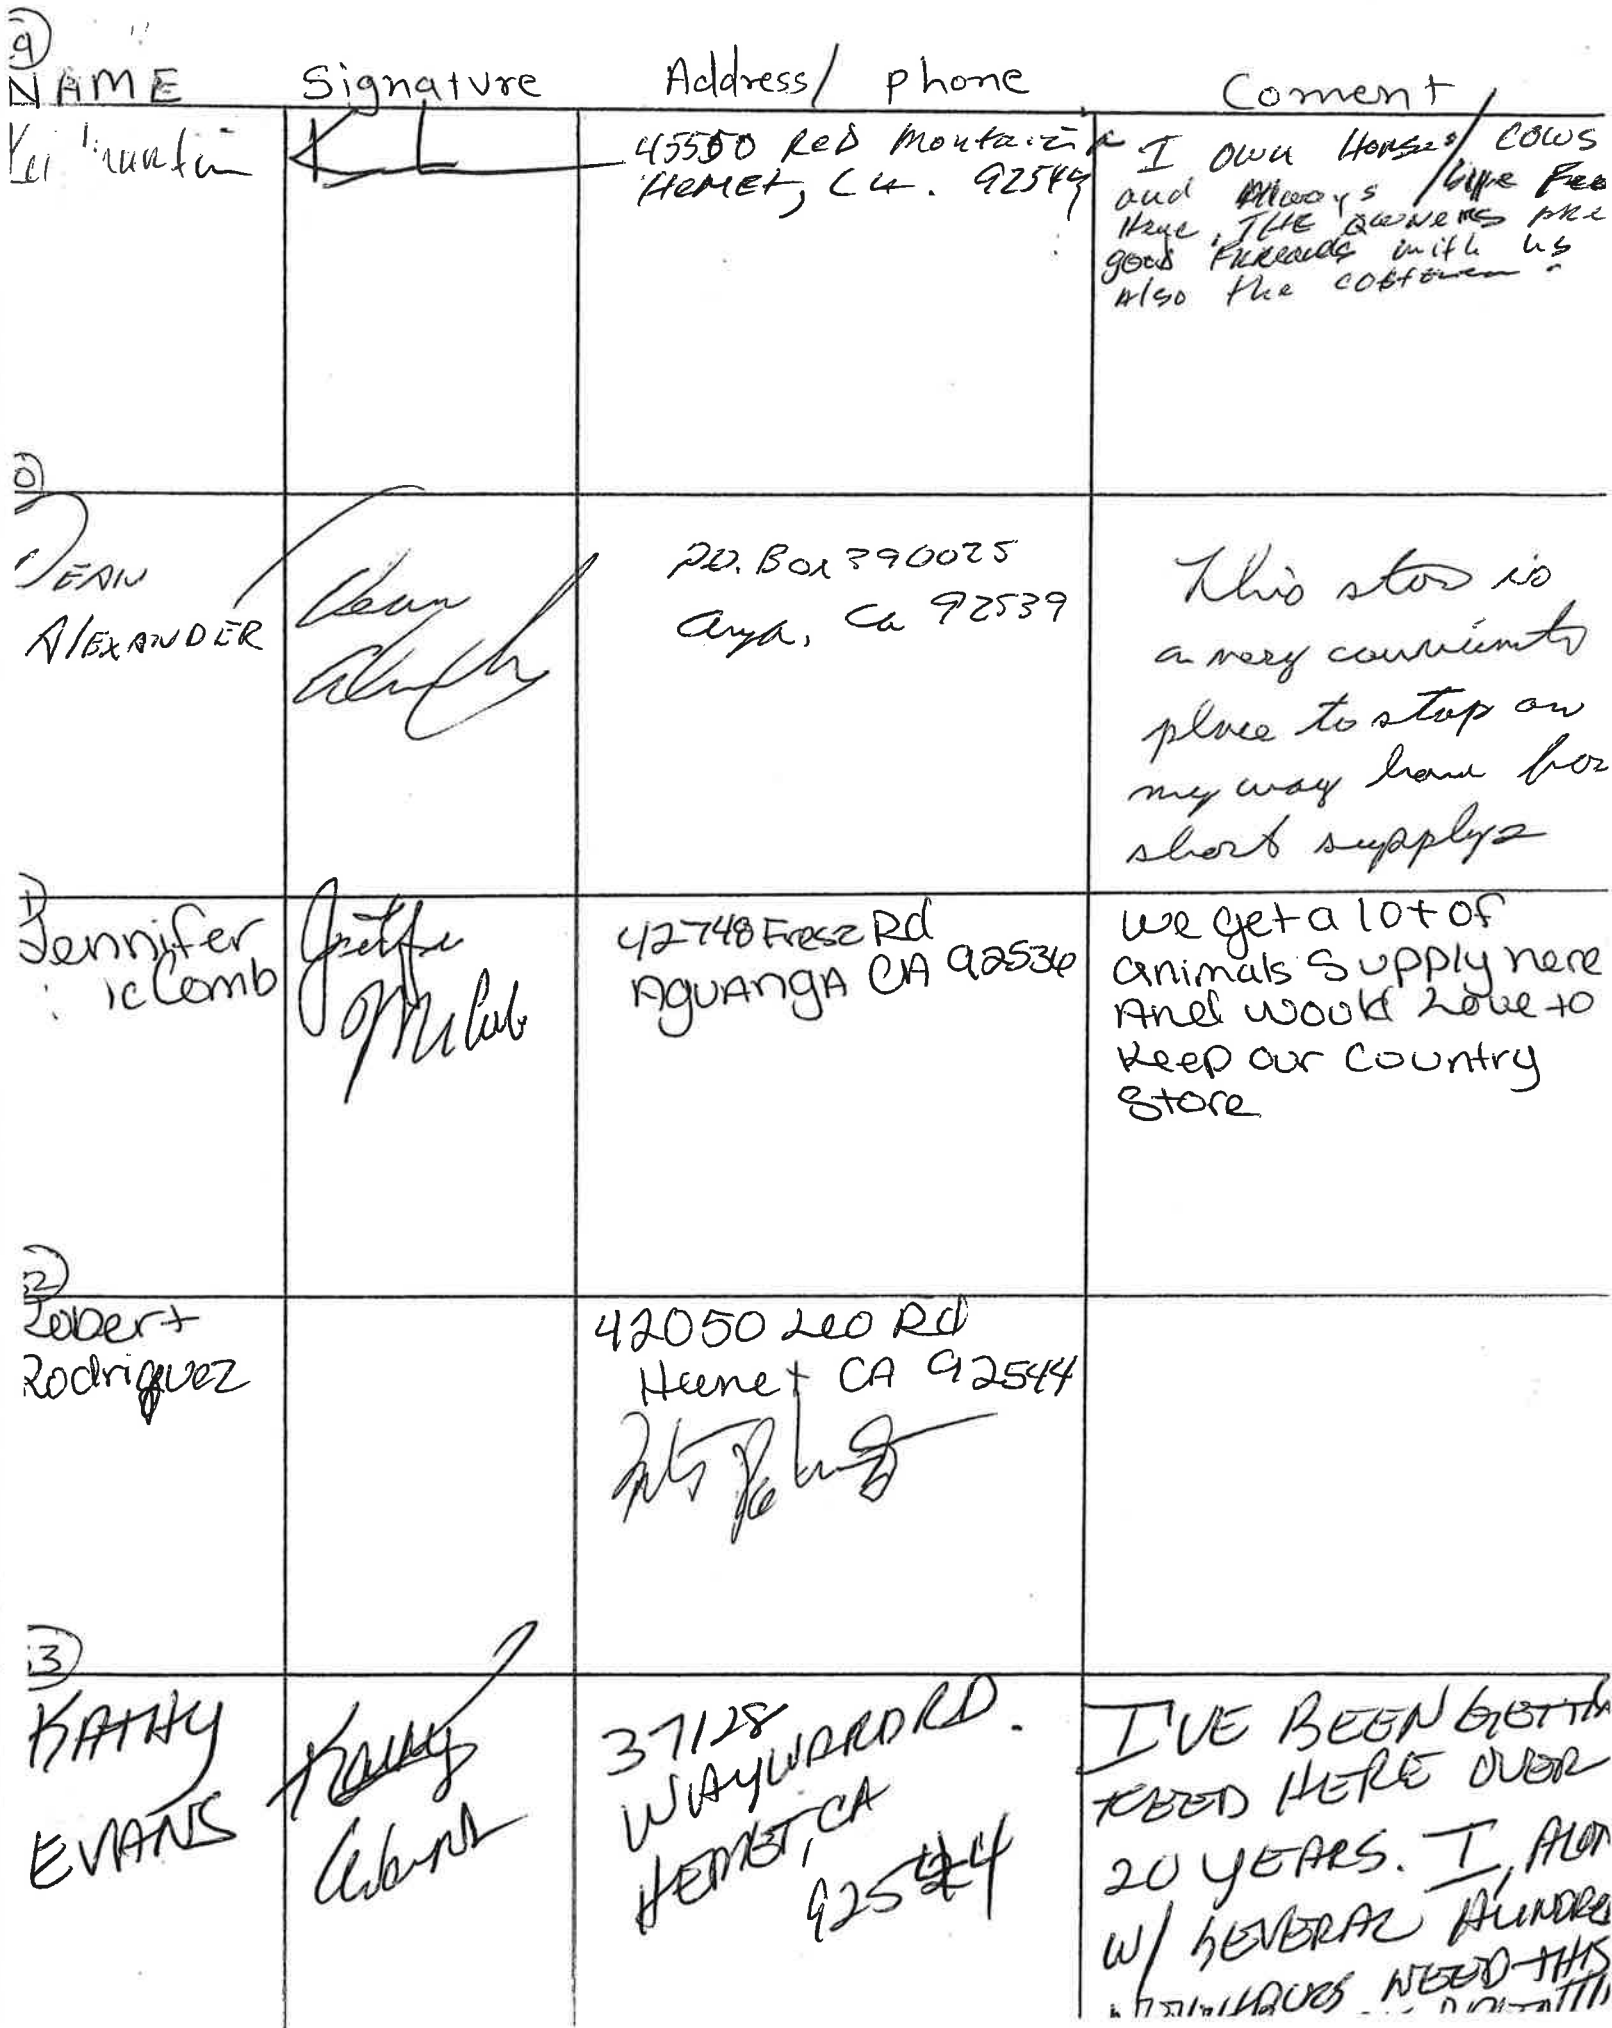 9
NAME Signature Address/ phone Coment
45550 Red Mountain
Hemet, Ca. 92544
I own Horses/cows
and Always
Here. THE owners are
good with us
Also the
0
DEAN
ALEXANDER
P.O. Box 390025
Anza, Ca 92539
This stor is
a very
place to stop on
my way home for
short supplys
1
Jennifer
McComb
42748 Rd
AguAngA CA 92536
we get a lot of
animals Supply here
And would Love to
keep our Country
Store
2
Robert
Rodriguez
42050 Leo Rd
Hemet CA 92544
3
KATHY
EVANS
Kathy
37128
WAYWARD RD.
HEMET, CA
92544
I'VE BEEN GETTIN
FEED HERE OVER
20 YEARS. I, ALON
W/ SEVERAL HUNDRE
NEED THIS